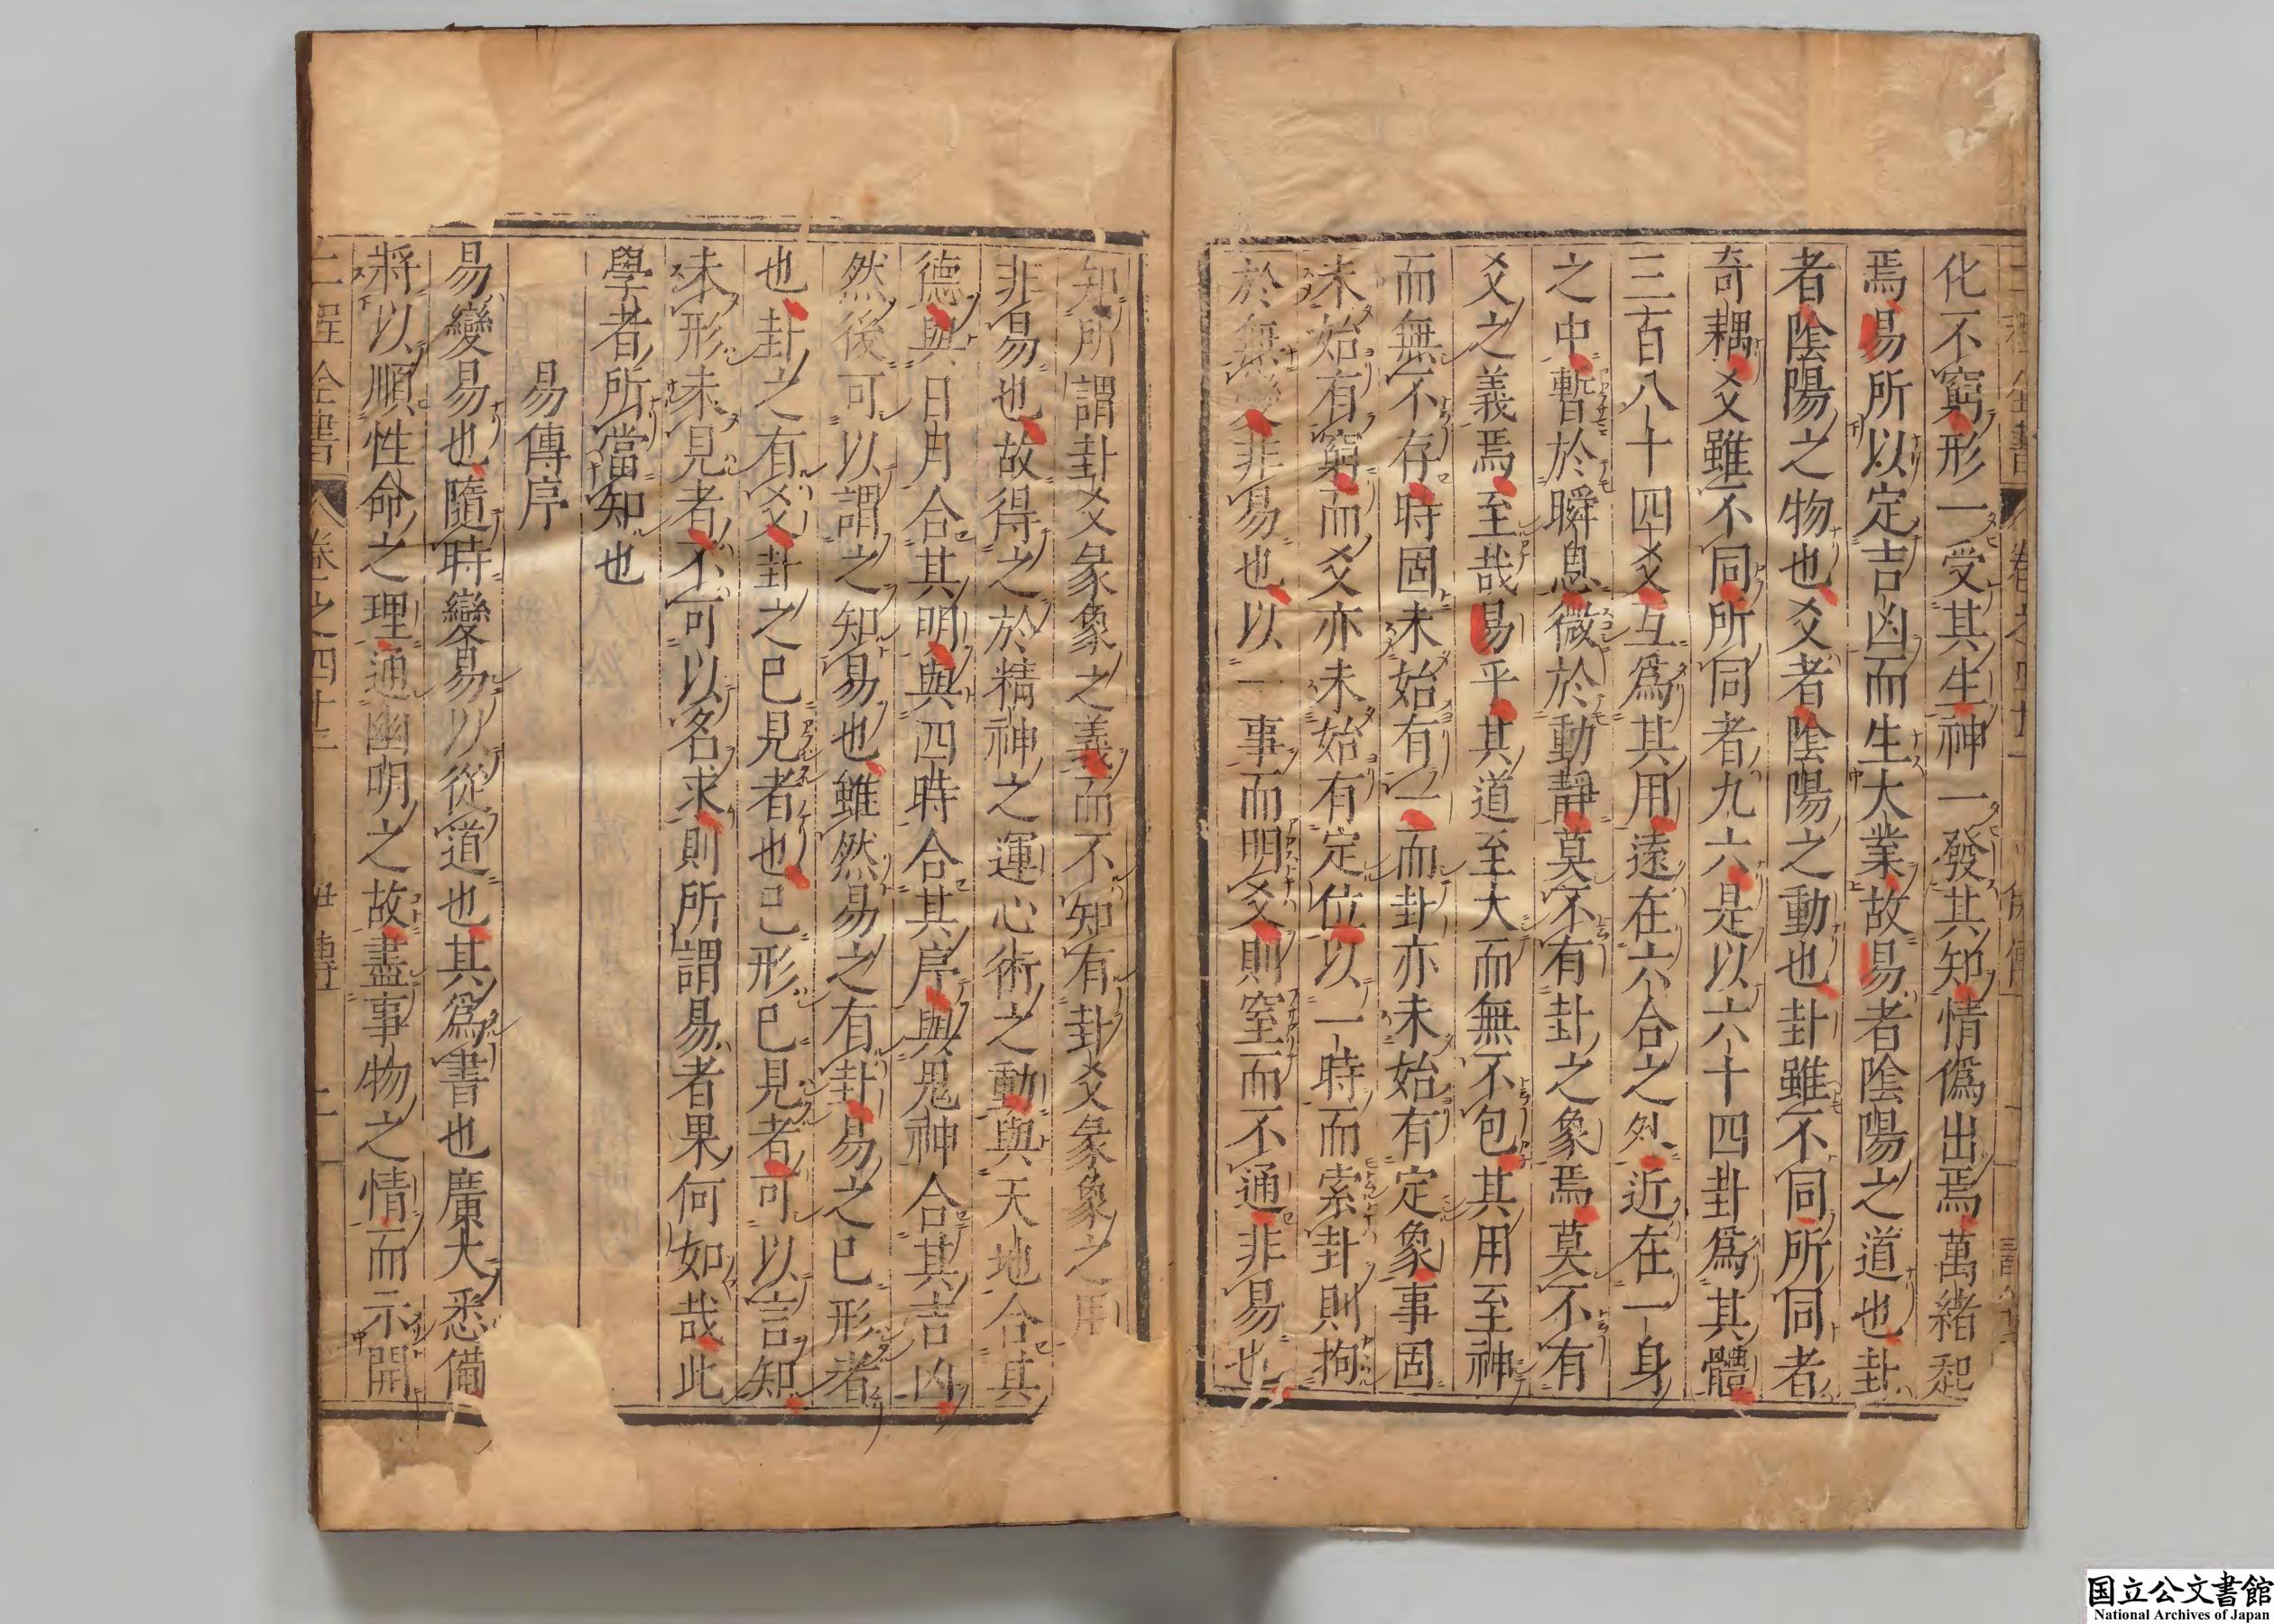 化不窮形一受其生神一發其知情僞出焉萬緒起
焉易所以定吉凶而生大業故易者陰陽之道也卦
者陰陽之物也爻者陰陽之動也卦雖不同所同者
奇耦爻雖不同所同者九六是以六十四卦爲其體
三百八十四爻互爲其用遠在六合之外近在一身
之中暫於瞬息微於動靜莫不有卦之象焉莫不有
爻之義焉至哉易乎其道至大而無不包其用至神
而無不存時固未始有一而卦亦未始有定象事固
未始有窮而爻亦未始有定位以一時而索卦則拘
於無變非易也以一事而明爻則窒而不通非易也
知所謂卦爻彖象之義而不知有卦爻彖象之用
非易也故得之於精神之運心術之動與天地合其
德與日月合其明與四時合其序與鬼神合其吉凶
然後可以謂之知易也雖然易之有卦易之已形者
也卦之有爻卦之已見者也已形已見者可以言知
未形未見者不可以名求則所謂易者果何如哉此
學者所當知也
易傳序
易變易也隨時變易以從道也其爲書也廣大悉備
將以順性命之理通幽明之故盡事物之情而示開
二程全書 卷之四十二
国立公文書館
National Archives of Japan